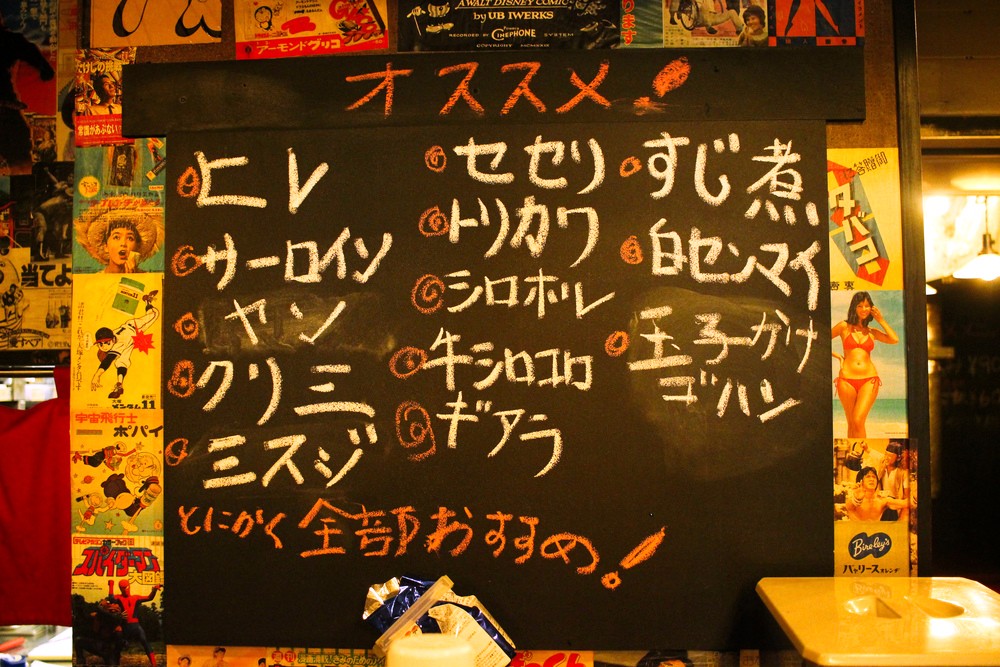 A WALT DISNEY COMIC
by UB IWERKS
RECORDED BY CINEPHONE SYSTEM
アーモンドグリコ
オススメ!
ヒレ
サーロイン
ヤン
クリミ
ミスジ
セセリ
トリカワ
シロホルン
牛シロコロ
ギアラ
すじ煮
白センマイ
玉子かけ
ゴハン
とにかく全部おすすめ!
当てよ
宇宙飛行士
ポパイ
スパイダーマン
Bireley's
バャリースオレンヂ